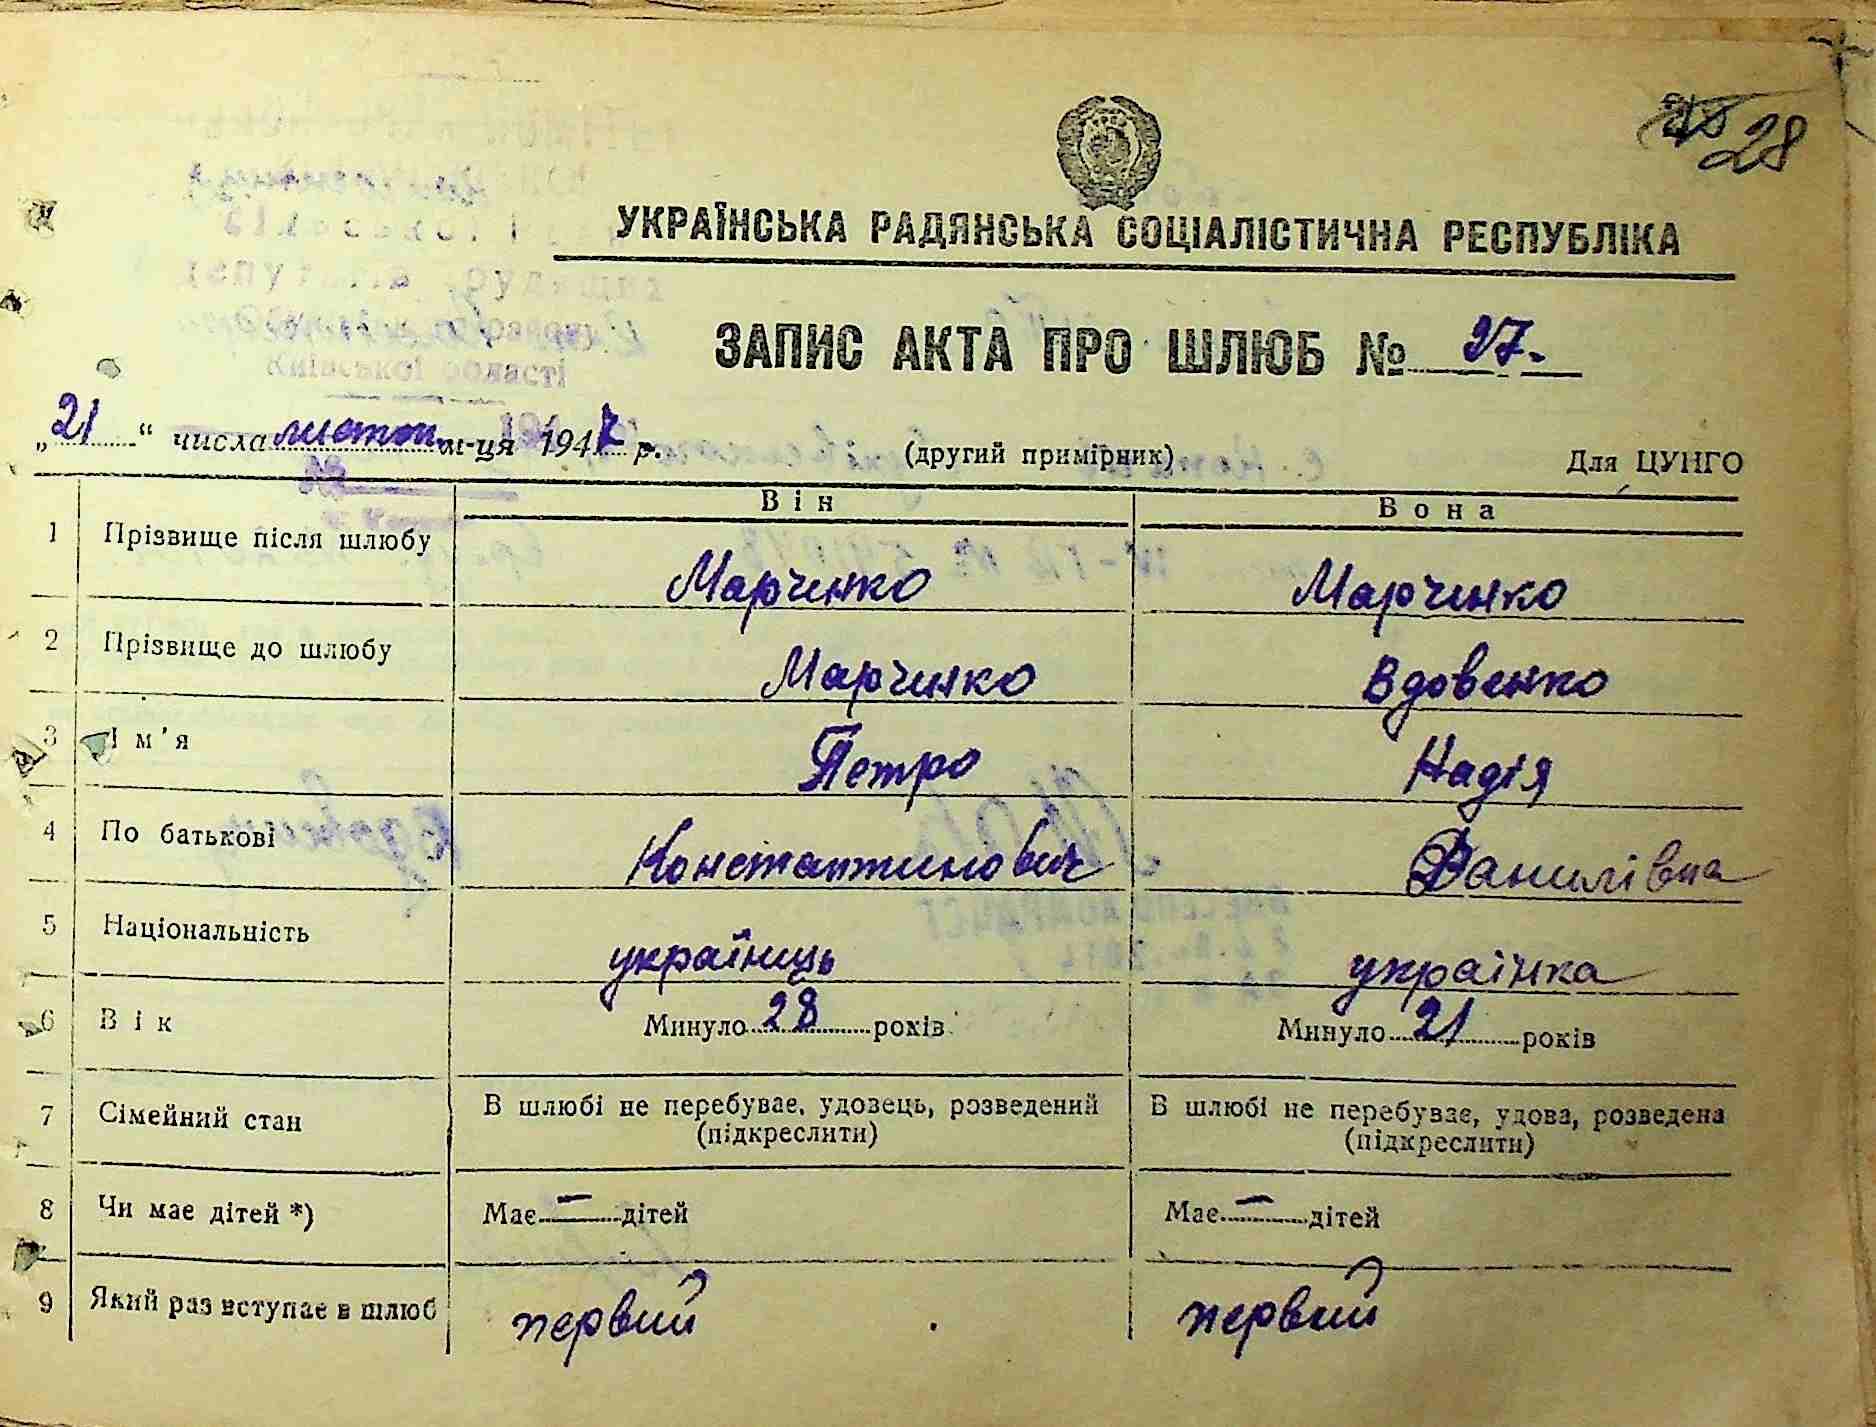 28
УКРАЇНСЬКА РАДЯНСЬКА СОЦІАЛІСТИЧНА РЕСПУБЛІКА
ЗАПИС АКТА ПРО ШЛЮБ № 27.
„21“ числа листоп м-ця 1947 р. (другий примірник) Для ЦУНГО
Він Вона
1 Прізвище після шлюбу Марчинко Марчинко
2 Прізвище до шлюбу Марчинко Вдовенко
3 Ім’я Петро Надія
4 По батькові Константинович Данилівна
5 Національність україниць українка
6 Вік Минуло 28 років Минуло 21 років
7 Сімейний стан В шлюбі не перебуває, удовець, розведений В шлюбі не перебуває, удова, розведена
(підкреслити) (підкреслити)
8 Чи має дітей *) Має – дітей Має – дітей
9 Який раз вступає в шлюб первий первий